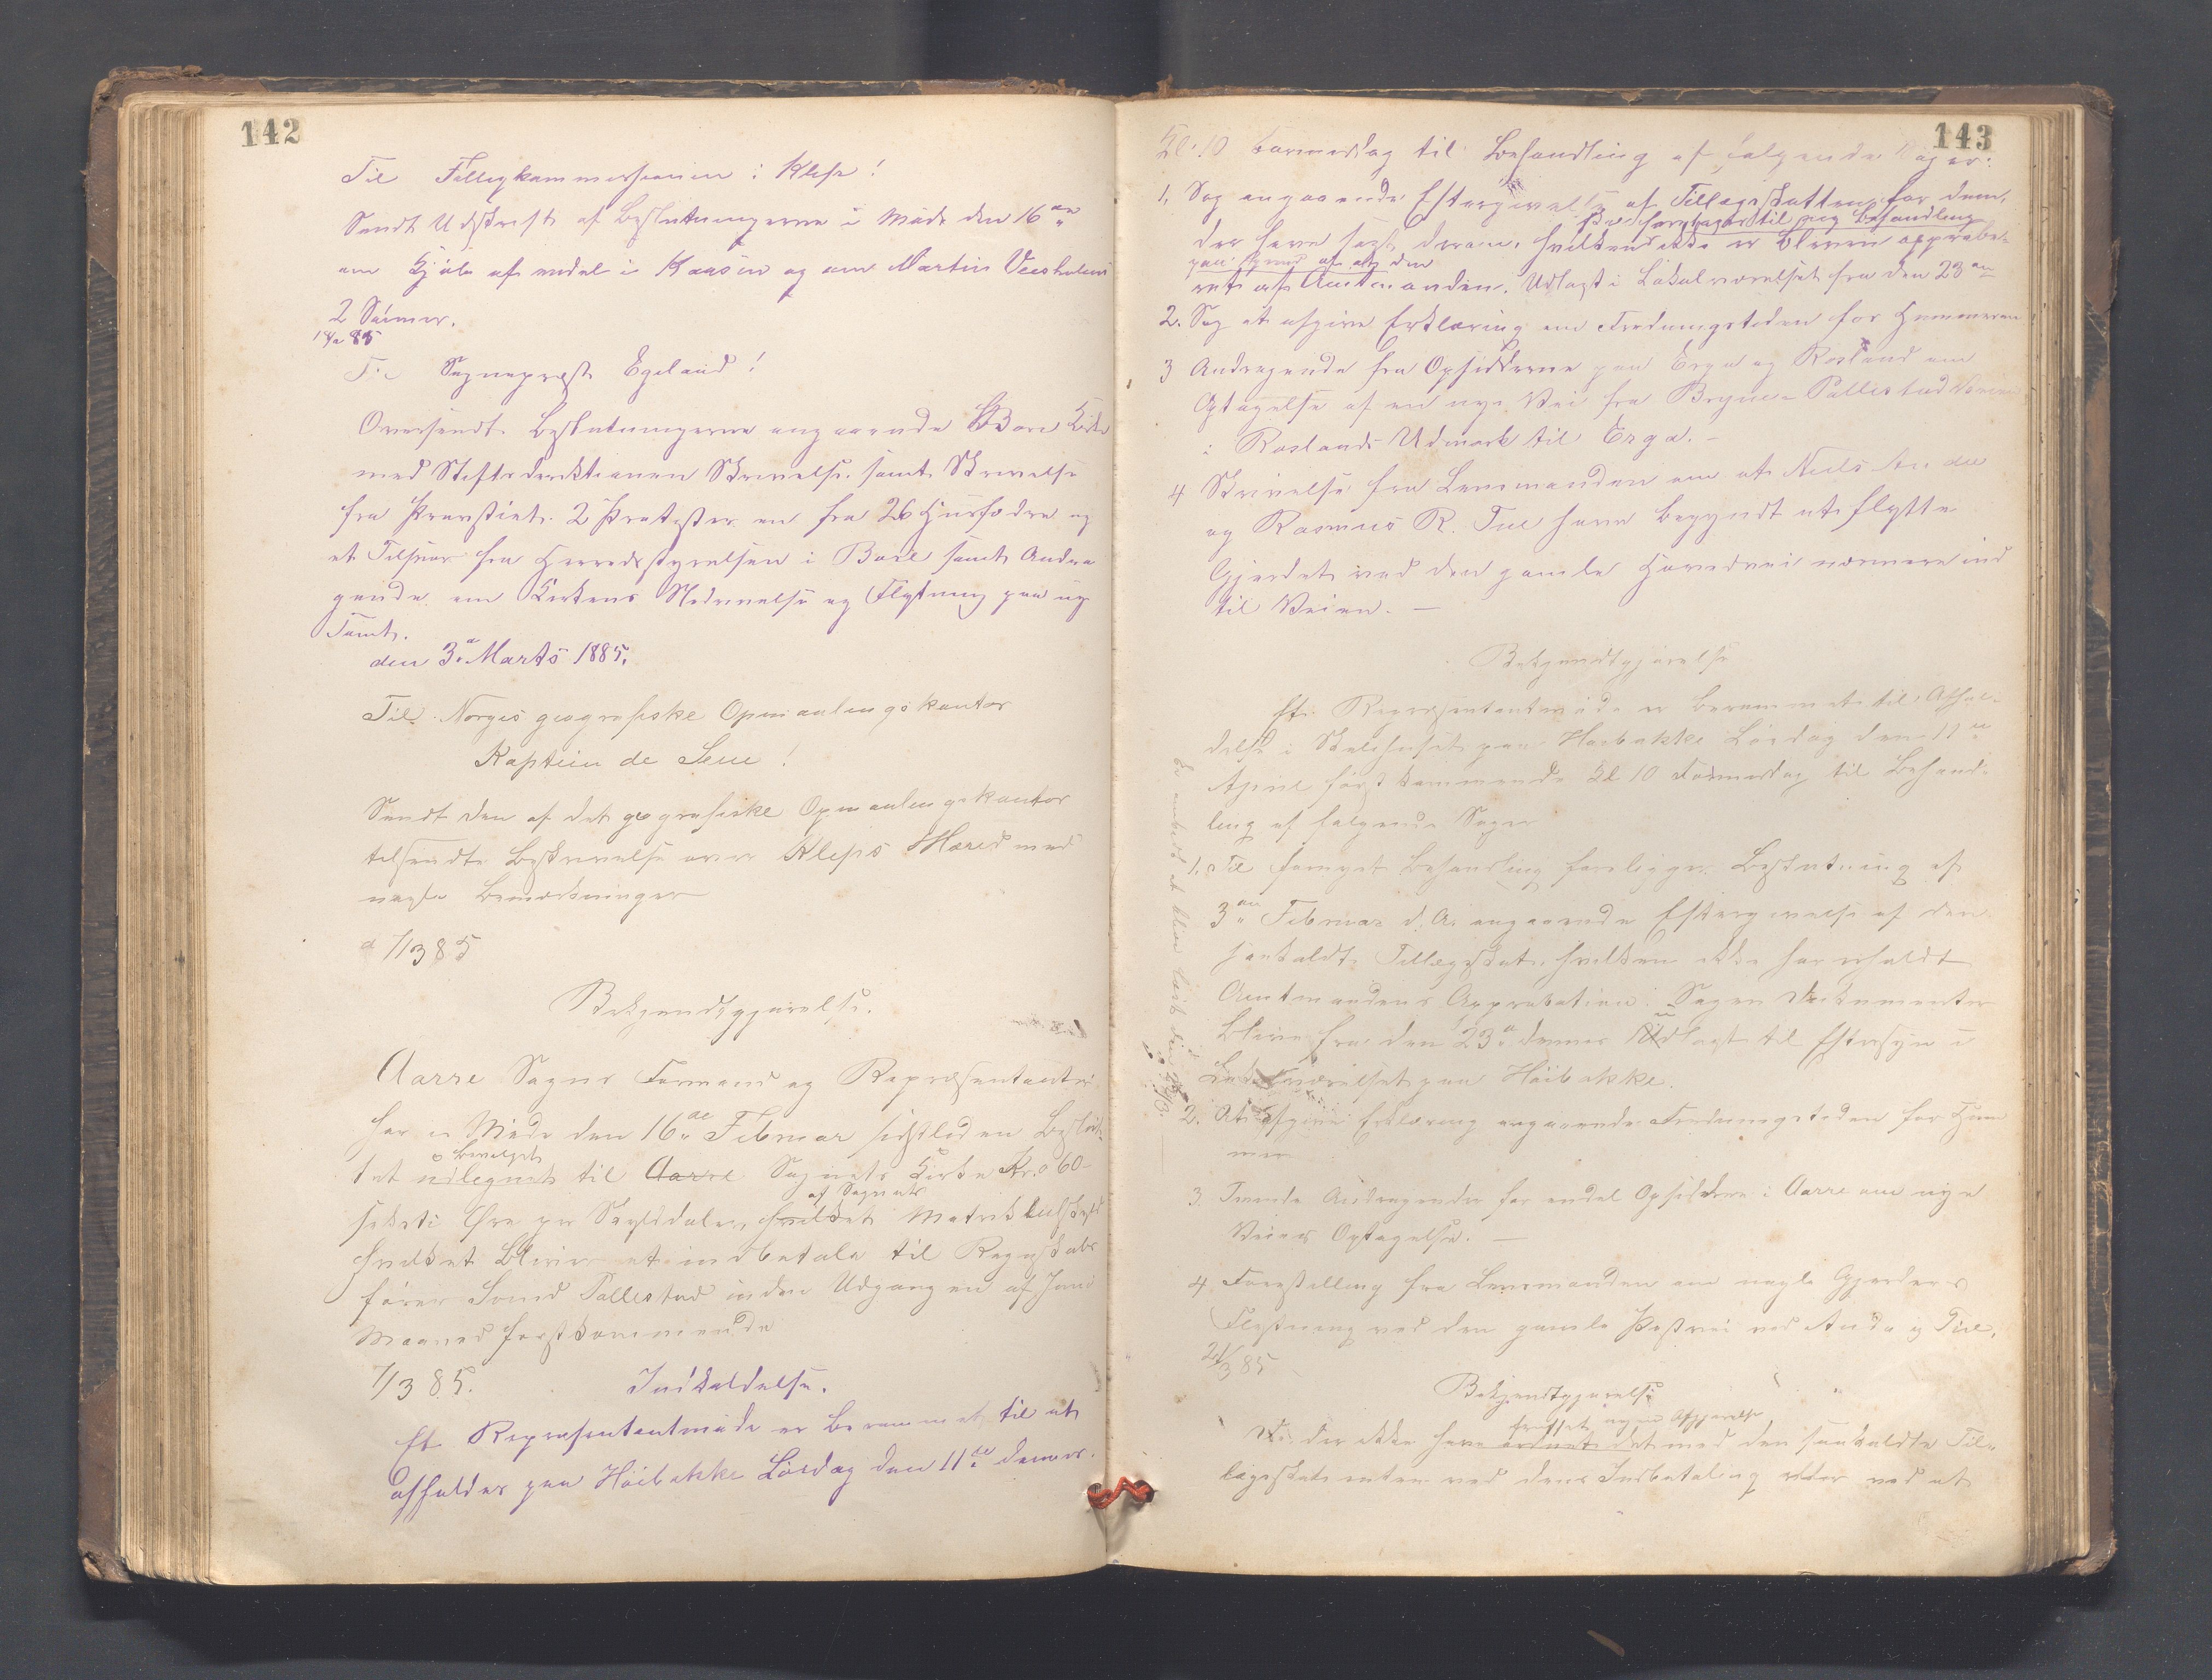 142
Til Fattigkommissionen i Klep!
Sendt Udskrift af Beslutningerne i Møde den 16de
om Kjøb af endel i Kaasen og om Martin Veesholms
2 Sønner.
Til Sogneprest Egeland!
Oversendt Beslutningerne angaaende Bore Kirke
med Stiftsdirektionens Skrivelse samt Skrivelse
fra Provstiet. 2 Protester en fra 26 Husfædre og
et Tilsvar fra Herredsstyrelsen i Bore samt Andra
gende om Kirkens Nedrivelse og Flytning paa ny
Tomt.
den 3de Marts 1885.
Til Norges geografiske Opmaalingskontor
Kaptein de Seue!
Sendt den af det geografiske Opmaalingskontor
tilsendte Beskrivelse over Kleps Hered med
nogle Bemærkninger
d 7/3 85
Bekjendtgjørelse.
Aarre Sogns Formænd og Repræsentanter
har i Møde den 16de Februar sidstleden beslut-
bevilget
tet udlignet til Aarre Sognets Kirke Kr. 0 60
af Sognets
seksti Øre pr Skylddaler, hvilket Matrikulskyld
hvilket bliver at indbetale til Regnskabs
fører Svend Pallestad inden Udgangen af Juni
Maaned førstkommende
7/3 85.
Indkaldelse.
Et Repræsentantmøde er berammet til at
afholdes paa Höibakke Lördag den 11te dennes.
143
Kl. 10 Formiddag til Behandling af følgende Sager:
1, Sag angaaende Eftergivelse af Tillægsskatten for dem,
foretages til ny Behandling
der have søgt derom, hvilken ikke er bleven approbe-
paa Grund af at den
ret af Amtmanden. Udlagt i Lokalværelset fra den 23de
2. Sag at afgive Erklæring om Fredningstiden for Hummeren
3 Andragende fra Opsidderne paa Erga og Rosland om
Optagelse af en ny Vei fra Bryne-Pallestad Veien
i Roslands Udmark til Erga. -
4 Skrivelse fra Lensmanden om at Niels Anda
og Rasmus R. Tue have begyndt at flytte
Gjerdet ved den gamle Hovedvei nærmere ind
til Veien. -
Bekjendtgjørelse
Et Repræsentantmøde er berammet til Afhol-
delse i Skolehuset paa Høibakke Lørdag den 11te
April først kommende Kl 10 Formiddag til Behand-
ling af følgende Sager
1. Til fornyet Behandling foreligger Beslutning af
3die Februar d. A. angaaende Eftergivelse af den
saakaldte Tillægsskat, hvilken ikke har erholdt
Amtmandens Approbation. Sagens Dokumenter
blive fra den 23de dennes udlagt til Eftersyn i
Lokalværelset paa Höibakke.
2. At afgive Erklæring angaaende Fredningstiden for Hum
mer
3. Tvende Andragender fra endel Opsiddere i Aarre om nye
Veies Optagelse. -
4. Forestilling fra Lensmanden om nogle Gjerders
Flytning ved den gamle Postvei ved Anda og Tue.
21/3 85
Bekjendtgjørelse
truffet nogen Afgjørelse
De der ikke have ordnet det med den saakaldte Til-
lægsskat enten ved dens Indbetaling eller ved at